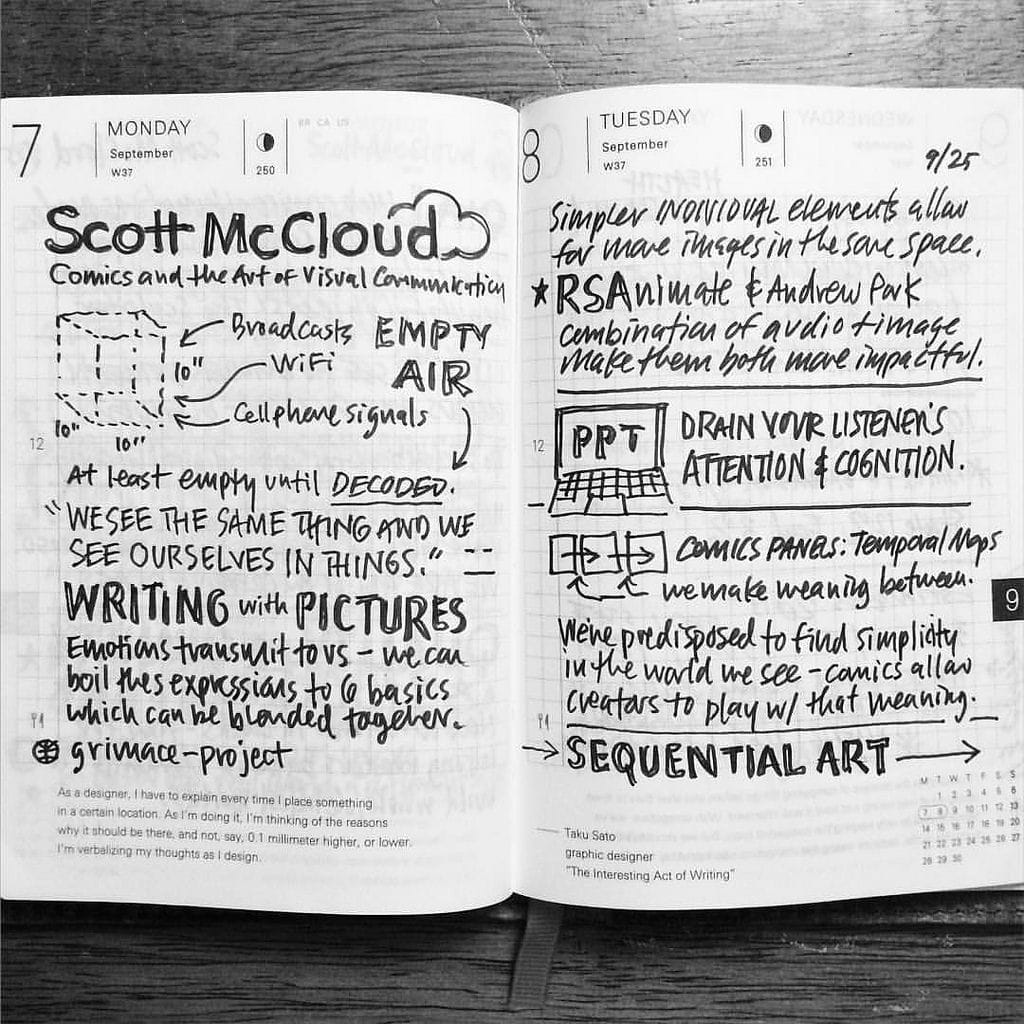 7
MONDAY
September
W37
250
KR CA US
Scott McCloud
Comics and the Art of Visual Communication
Broadcasts EMPTY
10" WiFi AIR
Cellphone signals
10" 10"
12
At least empty until DECODED.
"WE SEE THE SAME THING AND WE
SEE OURSELVES IN THINGS." --
WRITING with PICTURES
Emotions transmit to us - we can
boil thes expressions to 6 basics
which can be blended together.
grimace-project
As a designer, I have to explain every time I place something
in a certain location. As I'm doing it, I'm thinking of the reasons
why it should be there, and not, say, 0.1 millimeter higher, or lower.
I'm verbalizing my thoughts as I design.
8
TUESDAY
September
W37
251
9/25
Simpler INDIVIDUAL elements allow
for more images in the same space.
★ RSAnimate & Andrew Park
combination of audio + image
make them both more impactful.
12
PPT
DRAIN YOUR LISTENER'S
ATTENTION & COGNITION.
COMICS PANELS: Temporal Maps
we make meaning between.
9
We're predisposed to find simplicity
in the world we see - comics allow
creators to play w/ that meaning.
→ SEQUENTIAL ART →
M T W T F S S
1 2 3 4 5 6
7 8 9 10 11 12 13
14 15 16 17 18 19 20
21 22 23 24 25 26 27
28 29 30
Taku Sato
graphic designer
"The Interesting Act of Writing"